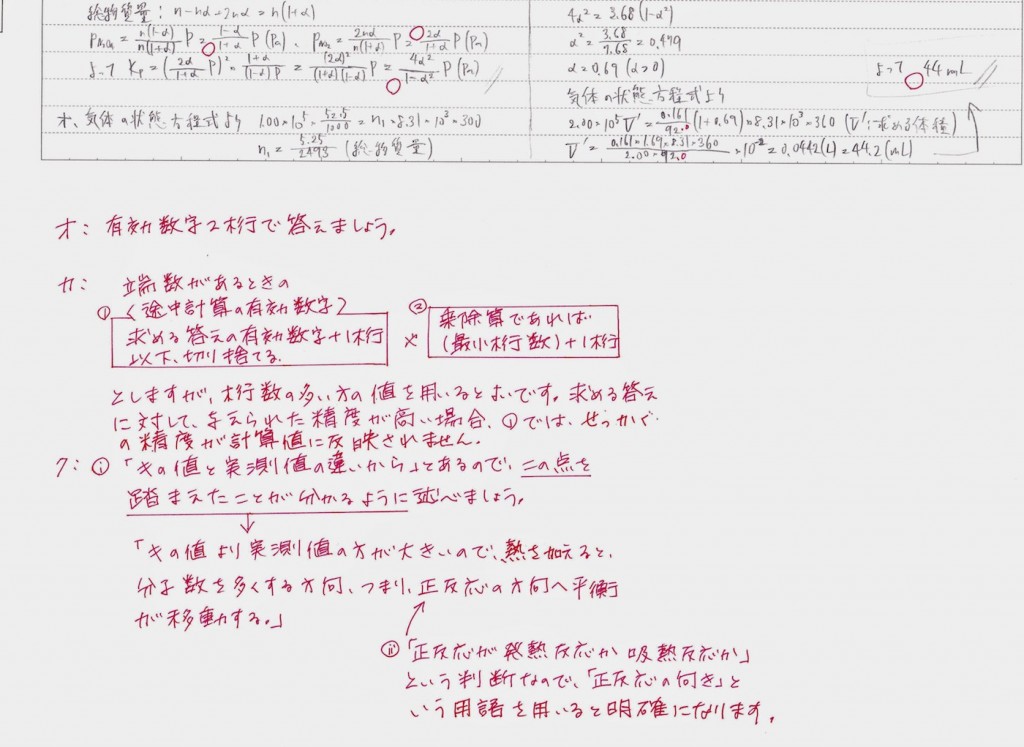 総物質量: n-nα+2nα = n(1+α)
P_N₂O₄ = n(1-α)/n(1+α) P = 1-α/1+α P (Pa)、P_NO₂ = 2nα/n(1+α) P = 2α/1+α P (Pa)
よって Kp = (2α/1+α P)²・1+α/(1-α)P = (2α)²/(1+α)(1-α) P = 4α²/1-α² P (Pa)
オ、気体の状態方程式より 1.00×10⁵×52.5/1000 = n₁×8.31×10³×300
n₁ = 5.25/2493 (総物質量)
4α² = 3.68(1-α²)
α² = 3.68/7.68 = 0.479
α = 0.69 (α>0)
気体の状態方程式より
2.00×10⁵ V' = 0.161/92.0 (1+0.69)×8.31×10³×360 (V':求める体積)
V' = 0.161×1.69×8.31×360/2.00×92.0 ×10⁻² = 0.0442(L) = 44.2(mL)
よって 44mL
オ: 有効数字2桁で答えましょう。
カ: 端数があるときの
① <途中計算の有効数字>
求める答えの有効数字+1桁
以下、切り捨てる
② 乗除算であれば
(最小桁数)+1桁
としますが、桁数の多い方の値を用いるとよいです。求める答え
に対して、与えられた精度が高い場合、①では、せっかく
の精度が計算値に反映されません。
ク: ⅰ 「キの値と実測値の違いから」とあるので、この点を
踏まえたことが分かるように述べましょう。
「キの値より実測値の方が大きいので、熱を加えると、
分子数を多くする方向、つまり、正反応の方向へ平衡
が移動する。」
ⅱ 「正反応が発熱反応か吸熱反応か」
という判断なので、「正反応の向き」と
いう用語を用いると明確になります。